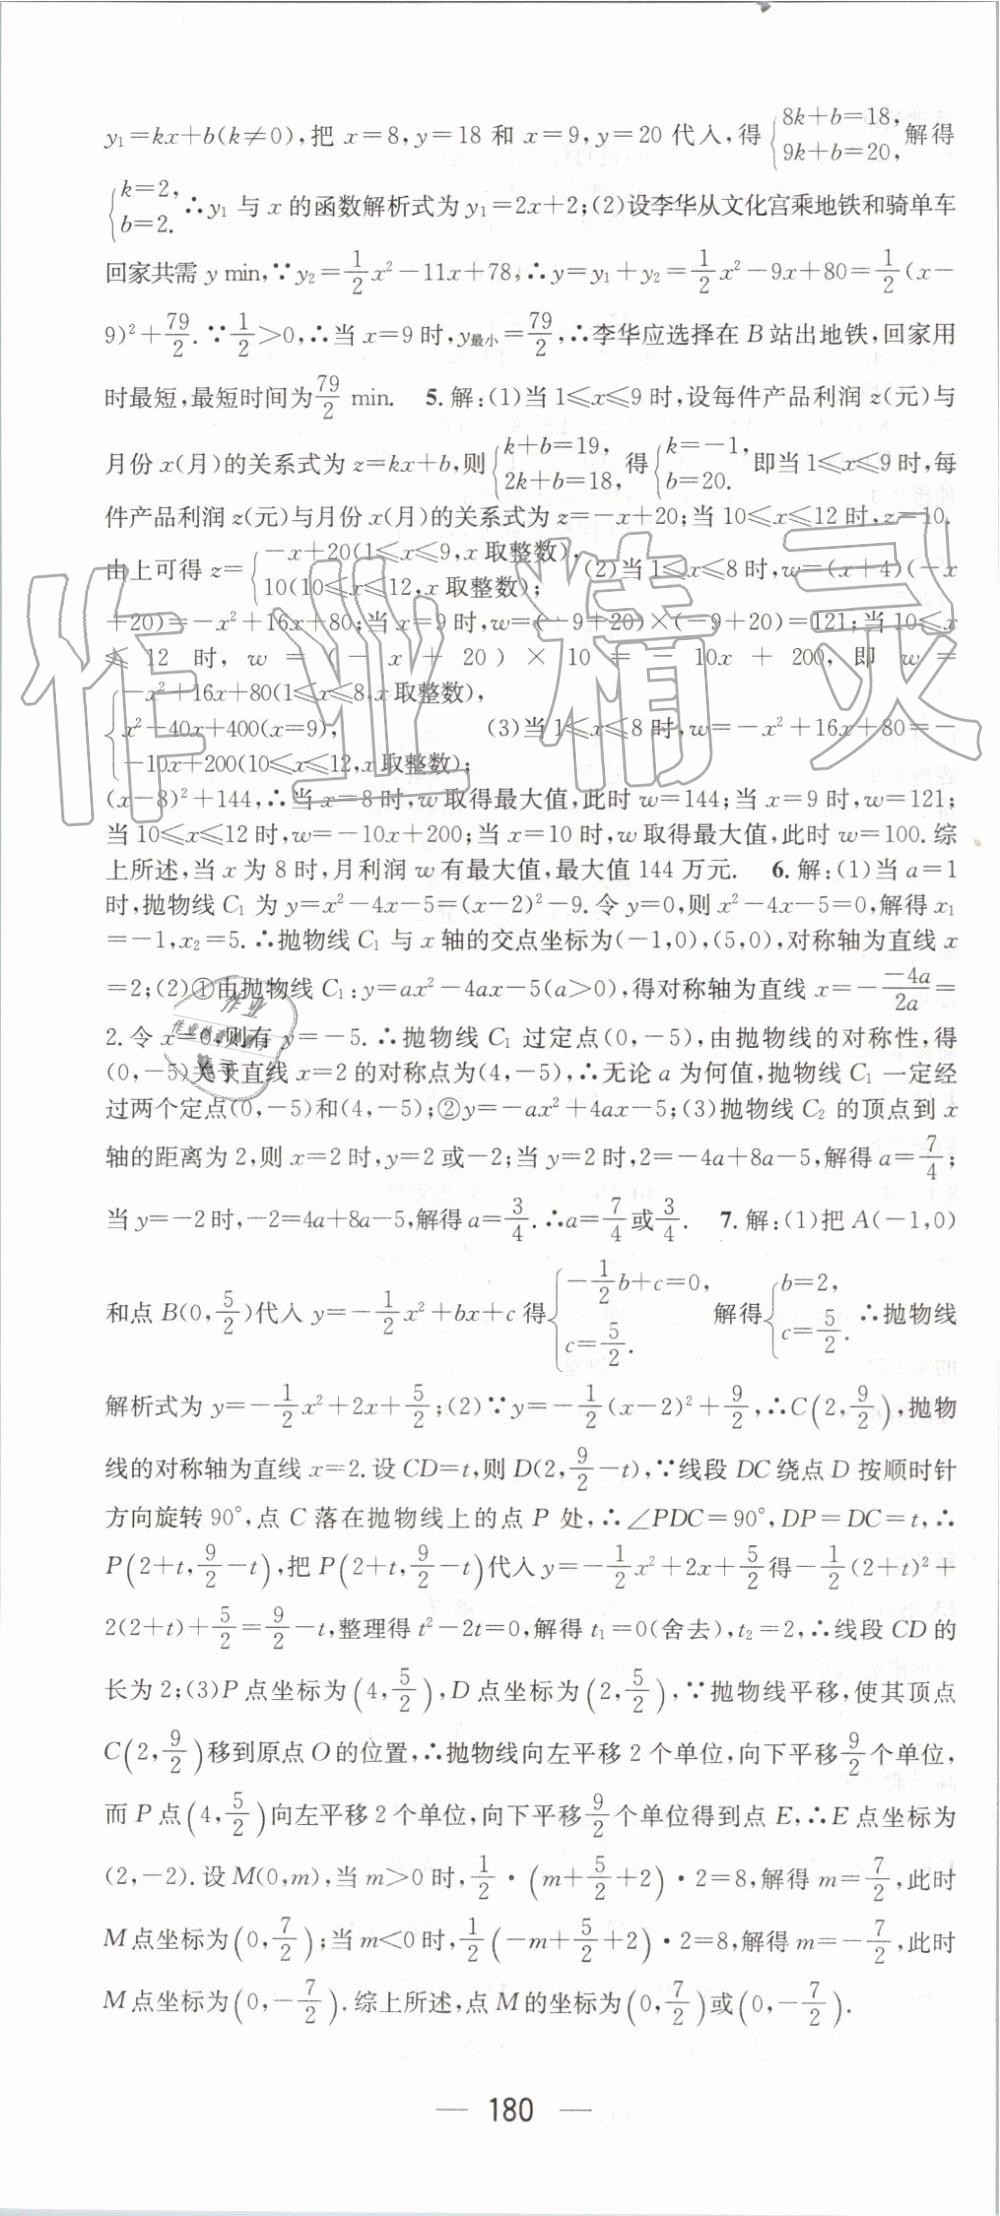 y₁=kx+b(k≠0),把 x=8,y=18 和 x=9,y=20 代入,得{8k+b=18, 9k+b=20, 解得
{k=2, b=2. ∴y₁ 与 x 的函数解析式为 y₁=2x+2;(2)设李华从文化宫乘地铁和骑单车
回家共需 y min,∵y₂=1/2x²-11x+78,∴y=y₁+y₂=1/2x²-9x+80=1/2(x-
9)²+79/2.∵1/2>0,∴当 x=9 时,y最小=79/2,∴李华应选择在 B 站出地铁,回家用
时最短,最短时间为79/2 min. 5.解:(1)当 1≤x≤9 时,设每件产品利润 z(元)与
月份 x(月)的关系式为 z=kx+b,则{k+b=19, 2k+b=18, 得{k=-1, b=20. 即当 1≤x≤9 时,每
件产品利润 z(元)与月份 x(月)的关系式为 z=-x+20;当 10≤x≤12 时,z=10.
由上可得 z={-x+20(1≤x≤9,x 取整数), 10(10≤x≤12,x 取整数); (2)当 1≤x≤8 时,w=(x+4)(-x
+20)=-x²+16x+80;当 x=9 时,w=(-9+20)×(-9+20)=121;当 10≤x
≤12 时,w=(-x+20)×10=-10x+200,即 w=
{-x²+16x+80(1≤x≤8,x 取整数),
x²-40x+400(x=9), (3)当 1≤x≤8 时,w=-x²+16x+80=-
-10x+200(10≤x≤12,x 取整数);
(x-8)²+144,∴当 x=8 时,w 取得最大值,此时 w=144;当 x=9 时,w=121;
当 10≤x≤12 时,w=-10x+200;当 x=10 时,w 取得最大值,此时 w=100.综
上所述,当 x 为 8 时,月利润 w 有最大值,最大值 144 万元. 6.解:(1)当 a=1
时,抛物线 C₁ 为 y=x²-4x-5=(x-2)²-9.令 y=0,则 x²-4x-5=0,解得 x₁
=-1,x₂=5.∴抛物线 C₁ 与 x 轴的交点坐标为(-1,0),(5,0),对称轴为直线 x
=2;(2)①由抛物线 C₁:y=ax²-4ax-5(a>0),得对称轴为直线 x=--4a/2a=
2.令 x=0,则有 y=-5.∴抛物线 C₁ 过定点(0,-5),由抛物线的对称性,得
(0,-5)关于直线 x=2 的对称点为(4,-5),∴无论 a 为何值,抛物线 C₁ 一定经
过两个定点(0,-5)和(4,-5);②y=-ax²+4ax-5;(3)抛物线 C₂ 的顶点到 x
轴的距离为 2,则 x=2 时,y=2 或-2;当 y=2 时,2=-4a+8a-5,解得 a=7/4;
当 y=-2 时,-2=4a+8a-5,解得 a=3/4.∴a=7/4或3/4. 7.解:(1)把 A(-1,0)
和点 B(0,5/2)代入 y=-1/2x²+bx+c 得{-1/2b+c=0, c=5/2. 解得{b=2, c=5/2. ∴抛物线
解析式为 y=-1/2x²+2x+5/2;(2)∵y=-1/2(x-2)²+9/2,∴C(2,9/2),抛物
线的对称轴为直线 x=2.设 CD=t,则 D(2,9/2-t),∵线段 DC 绕点 D 按顺时针
方向旋转 90°,点 C 落在抛物线上的点 P 处,∴∠PDC=90°,DP=DC=t,∴
P(2+t,9/2-t),把 P(2+t,9/2-t)代入 y=-1/2x²+2x+5/2得-1/2(2+t)²+
2(2+t)+5/2=9/2-t,整理得 t²-2t=0,解得 t₁=0(舍去),t₂=2,∴线段 CD 的
长为 2;(3)P 点坐标为(4,5/2),D 点坐标为(2,5/2),∵抛物线平移,使其顶点
C(2,9/2)移到原点 O 的位置,∴抛物线向左平移 2 个单位,向下平移9/2个单位,
而 P 点(4,5/2)向左平移 2 个单位,向下平移9/2个单位得到点 E,∴E 点坐标为
(2,-2).设 M(0,m),当 m>0 时,1/2·(m+5/2+2)·2=8,解得 m=7/2,此时
M 点坐标为(0,7/2);当 m<0 时,1/2(-m+5/2+2)·2=8,解得 m=-7/2,此时
M 点坐标为(0,-7/2).综上所述,点 M 的坐标为(0,7/2)或(0,-7/2).
— 180 —
作业精灵